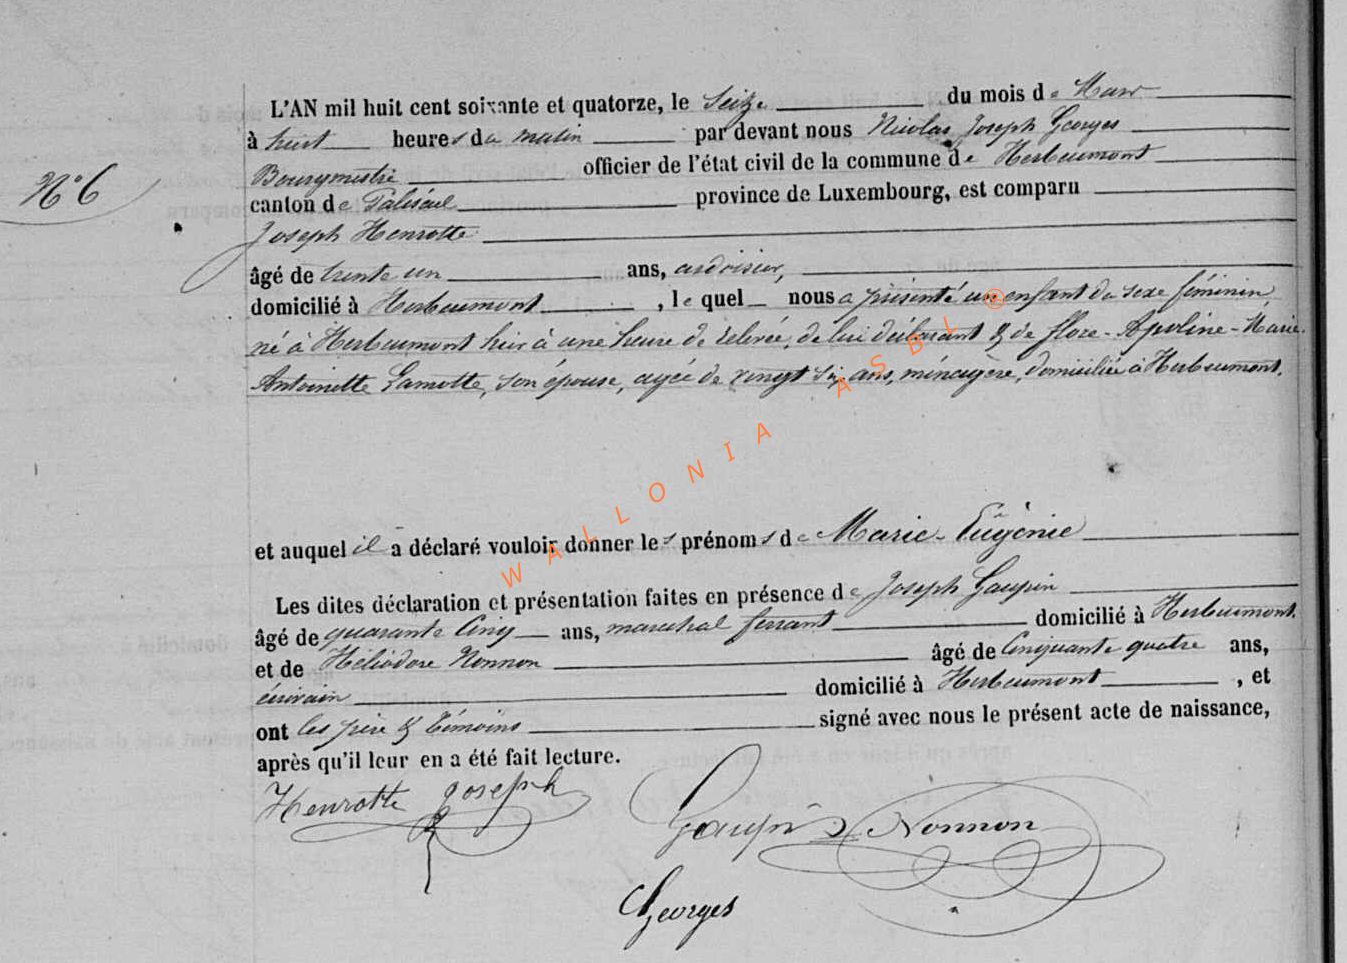 L'AN mil huit cent soixante et quatorze, le Seize du mois de Mars
à huit heures du matin par devant nous Nicolas Joseph Georges
Bourgmestre officier de l'état civil de la commune de Herbeumont
N° 6
canton de Paliseul province de Luxembourg, est comparu
Joseph Henrotte
âgé de trente un ans, ardoisier,
domicilié à Herbeumont , le quel nous a présenté un enfant du sexe féminin,
né à Herbeumont hier à une heure de relevée, de lui déclarant & de flore-Apoline-Marie-
Antoinette Lamotte, son épouse, agée de vingt six ans, ménagère, domiciliée à Herbeumont.
WALLONIA ASBL ®
et auquel il a déclaré vouloir donner les prénoms de Marie-Eugénie
Les dites déclaration et présentation faites en présence de Joseph Gaupin
âgé de quarante Cinq ans, marechal ferrant domicilié à Herbeumont.
et de Héliodore Nonnon âgé de Cinquante quatre ans,
écrivain domicilié à Herbeumont , et
ont les père & témoins signé avec nous le présent acte de naissance,
après qu'il leur en a été fait lecture.
Henrotte Joseph
Gaupin J Nonnon
Georges